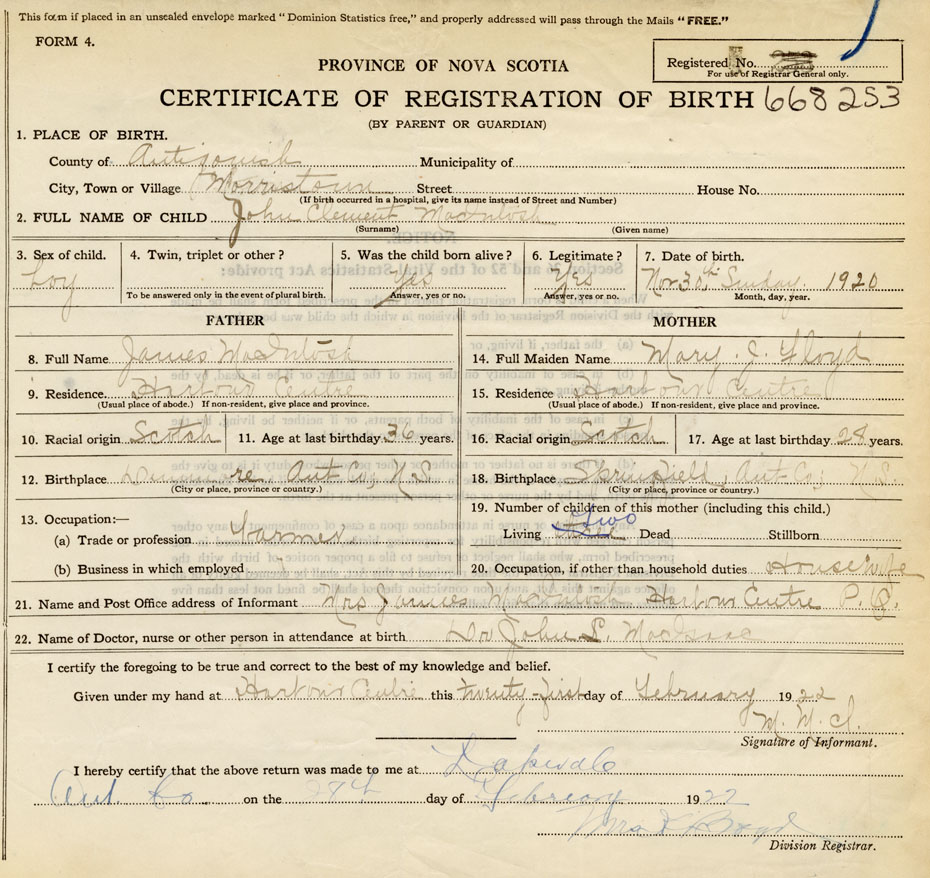 This form if placed in an unsealed envelope marked “Dominion Statistics free,” and properly addressed will pass through the Mails “FREE.”
FORM 4.
Registered No.
For use of Registrar General only.
PROVINCE OF NOVA SCOTIA
CERTIFICATE OF REGISTRATION OF BIRTH 668253
(BY PARENT OR GUARDIAN)
1. PLACE OF BIRTH.
County of Antigonish Municipality of
City, Town or Village Morristown Street House No.
(If birth occurred in a hospital, give its name instead of Street and Number)
2. FULL NAME OF CHILD John Clement MacIntosh
(Surname) (Given name)
3. Sex of child. 4. Twin, triplet or other? 5. Was the child born alive? 6. Legitimate? 7. Date of birth.
boy Yes Yes Nov 30th Sunday. 1920
To be answered only in the event of plural birth. Answer, yes or no. Answer, yes or no. Month, day, year.
FATHER MOTHER
8. Full Name James MacIntosh 14. Full Maiden Name Mary. J. Floyd
9. Residence. Harbour Centre 15. Residence Harbour Centre
(Usual place of abode.) If non-resident, give place and province. (Usual place of abode.) If non-resident, give place and province.
10. Racial origin Scotch 11. Age at last birthday 36 years. 16. Racial origin Scotch 17. Age at last birthday 28 years.
12. Birthplace Ant Co, N.S 18. Birthplace Springfield, Ant Co, N.S.
(City or place, province or country.) (City or place, province or country.)
19. Number of children of this mother (including this child.)
13. Occupation:—
(a) Trade or profession Farmer Living Two Dead Stillborn
(b) Business in which employed 20. Occupation, if other than household duties Housewife
21. Name and Post Office address of Informant Mrs James MacIntosh Harbour Centre P.O.
22. Name of Doctor, nurse or other person in attendance at birth Dr John L. MacIsaac
I certify the foregoing to be true and correct to the best of my knowledge and belief.
Given under my hand at Harbour Centre this twenty-first day of February 1922
Signature of Informant.
I hereby certify that the above return was made to me at Lakevale
Ant. Co. on the 27th day of February 1922
Mrs Boyd
Division Registrar.